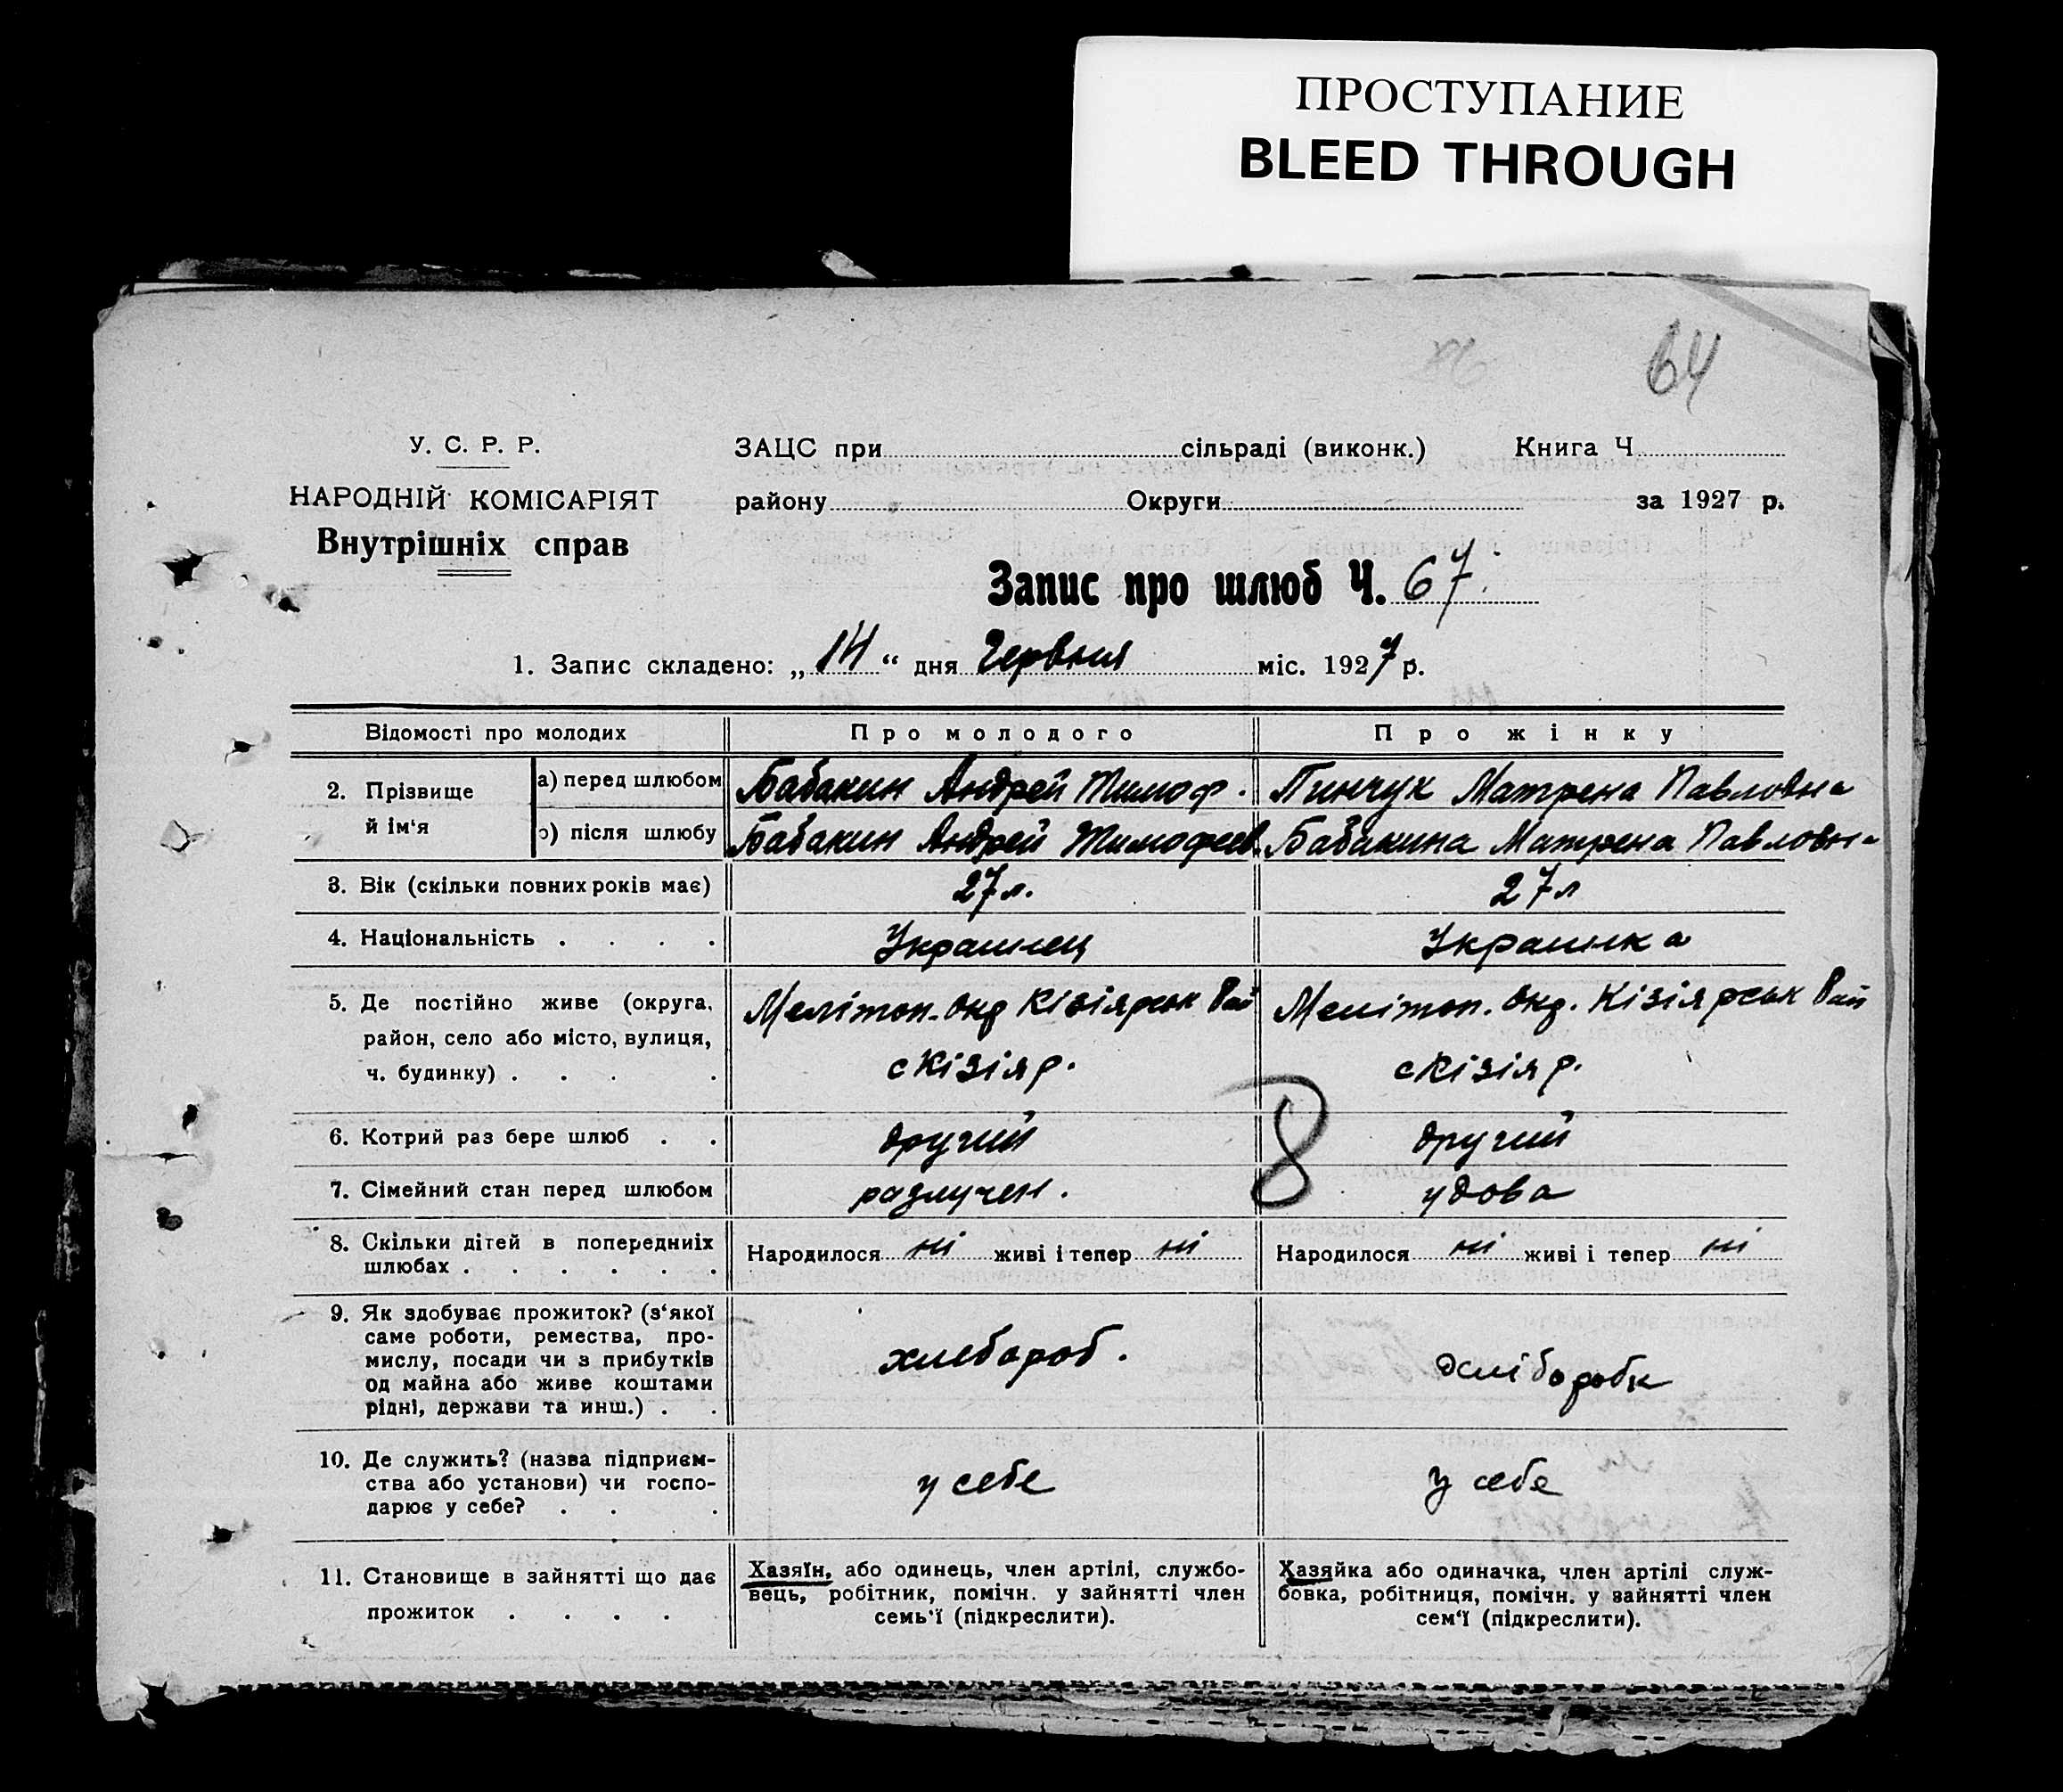 ПРОСТУПАНИЕ
BLEED THROUGH
64
У. С. Р. Р.
НАРОДНІЙ КОМІСАРІЯТ
Внутрішніх справ
ЗАЦС при сільраді (виконк.) Книга Ч.
району Округи за 1927 р.
Запис про шлюб Ч. 67.
1. Запис складено: „14“ дня Червня міс. 1927 р.
Відомості про молодих Про молодого Про жінку
2. Прізвище й ім‘я
а) перед шлюбом Бабакин Андрей Тимоф. Пинчук Матрена Павловна
ɔ) після шлюбу Бабакин Андрей Тимофеев. Бабакина Матрена Павловна
3. Вік (скільки повних років має) 27 л. 27 л
4. Національність . . . . Украинец Украинка
5. Де постійно живе (округа, Мелітоп. Окр Кізіярськ Рай Мелітоп. Окр. Кізіярськ Рай
район, село або місто, вулиця, с Кізіяр. с Кізіяр.
ч. будинку) . . . .
6. Котрий раз бере шлюб . . другий другий
8
7. Сімейний стан перед шлюбом разлучен. удова
8. Скільки дітей в попередниіх Народилося ні живі і тепер ні Народилося ні живі і тепер ні
шлюбах . . . . . .
9. Як здобуває прожиток? (з‘якої
саме роботи, ремества, про-
мислу, посади чи з прибутків хлебороб.
од майна або живе коштами хліборобк
рідні, держави та инш.) . .
10. Де служить? (назва підприєм-
ства або установи) чи госпо- у себе у себе
дарює у себе? . . .
11. Становище в зайнятті що дає
прожиток . . . .
Хазяїн, або одинець, член артілі, службо-
вець, робітник, помічн. у зайнятті член
семь‘ї (підкреслити).
Хазяйка або одиначка, член артілі служ-
бовка, робітниця, помічн. у зайнятті член
сем‘ї (підкреслити).